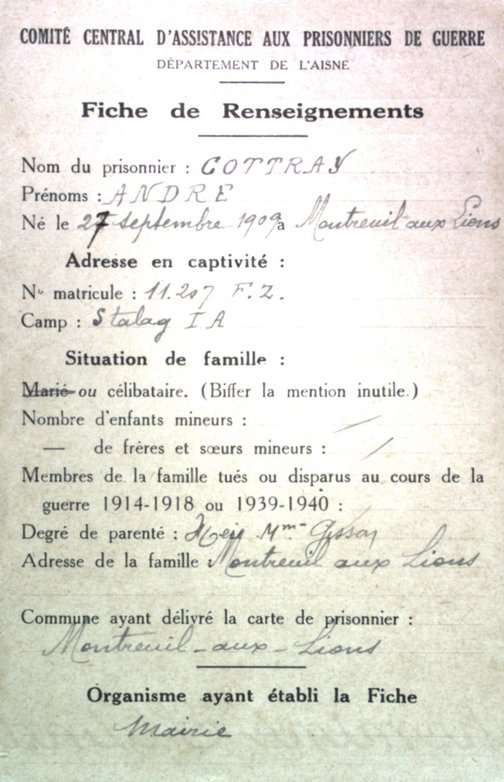 COMITÉ CENTRAL D'ASSISTANCE AUX PRISONNIERS DE GUERRE
DÉPARTEMENT DE L'AISNE
Fiche de Renseignements
Nom du prisonnier : COTTRAY
Prénoms : ANDRE
Né le 27 septembre 1909 à Montreuil-aux-Lions
Adresse en captivité :
N° matricule : 11.207 F.Z.
Camp : Stalag I A
Situation de famille :
Marié ou célibataire. (Biffer la mention inutile.)
Nombre d'enfants mineurs : /
— de frères et sœurs mineurs : /
Membres de la famille tués ou disparus au cours de la
guerre 1914-1918 ou 1939-1940 :
Degré de parenté : Mme
Adresse de la famille : Montreuil aux Lions
Commune ayant délivré la carte de prisonnier :
Montreuil-aux-Lions
Organisme ayant établi la Fiche
Mairie